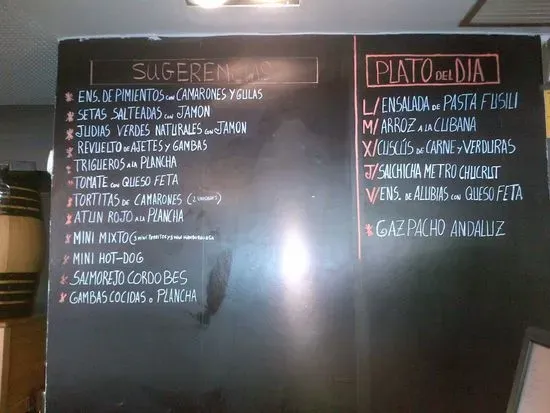 SUGERENCIAS
ENS. DE PIMIENTOS CON CAMARONES Y GULAS
SETAS SALTEADAS CON JAMON
JUDIAS VERDES NATURALES CON JAMON
REVUELTO DE AJETES Y GAMBAS
TRIGUEROS A LA PLANCHA
TOMATE CON QUESO FETA
TORTITAS DE CAMARONES (2 UNIDADES)
ATUN ROJO A LA PLANCHA
MINI MIXTO
MINI HOT-DOG
SALMOREJO CORDOBES
GAMBAS COCIDAS O PLANCHA
PLATO DEL DIA
L/ ENSALADA DE PASTA FUSILI
M/ ARROZ A LA CUBANA
X/ CUSCÚS DE CARNE Y VERDURAS
J/ SALCHICHA METRO CHUCRUT
V/ ENS. DE ALUBIAS CON QUESO FETA
GAZPACHO ANDALUZ